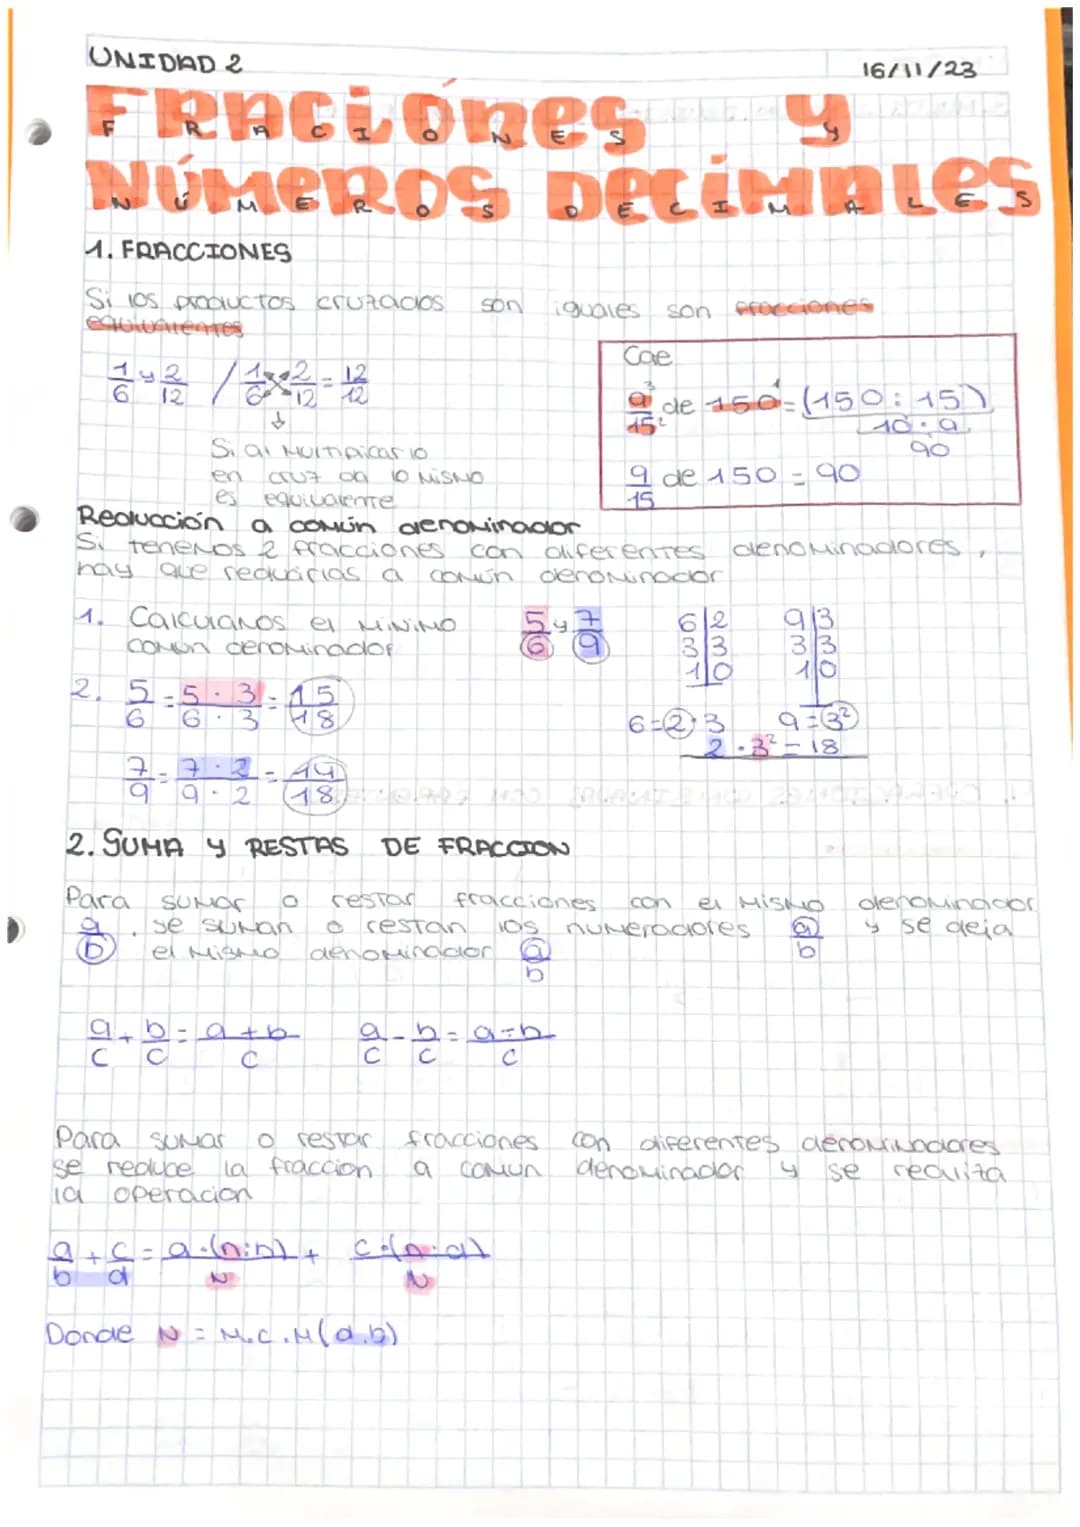 UNIDAD 2
16/11/23
FRACIONES Y
NÚMEROS DECIMALES
1. FRACCIONES
Si los productos cruzados son iguales son fracciones
equivalentes
1/6 y 2/12 / 1/6 x 2/12 = 12/12
Si al multiplicarlo
en cruz da lo mismo
es equivalente
Cae
9/15 de 150 = (150 : 15)
10 · 9
90
9/15 de 150 = 90
Reducción a común denominador
Si tenemos 2 fracciones con diferentes denominadores,
hay que reducirlas a común denominador
1. Calculamos el mínimo
común denominador
5/6 y 7/9
6|2 9|3
3|3 3|3
1|0 1|0
2. 5/6 = 5 · 3/6 · 3 = 15/18
6 = 2 · 3 9 = 3²
2 · 3² = 18
7/9 = 7 · 2/9 · 2 = 14/18
2. SUMA Y RESTAS DE FRACCION
Para sumar o restar fracciones con el mismo denominador
a/b, se suman o restan los numeradores a/b y se deja
el mismo denominador a/b
a/c + b/c = a+b/c a/c - b/c = a-b/c
Para sumar o restar fracciones con diferentes denominadores
se reduce la fraccion a comun denominador y se realiza
la operacion
a/b + c/d = a·(n:b)/N + c·(n:d)/N
Donde N = M.C.M(d.b)